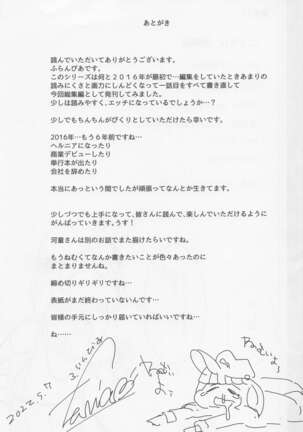 あとがき
読んでいただいてありがとうございます。
ふらんぴあです。
このシリーズは何と２０１６年が最初で…編集をしていたときあまりの
読みにくさと画力にしんどくなって一話目をすべて書き直して
今回総集編として発刊してみました。
少しは読みやすく、エッチになっているでしょうか…？
少しでもちんちんがぴくりとしていただけたら幸いです。
2016年…もう６年前ですね…
ヘルニアになったり
商業デビューしたり
単行本が出たり
会社を辞めたり
本当にあっという間でしたが頑張ってなんとか生きてます。
少しづつでも上手になって、皆さんに読んで、楽しんでいただけるように
がんばっていきます。うす！
河童さんは別のお話でまた描けたらいですね。
もうねむくてなんか書きたいことが色々あったのに
まとまりませんね。
締め切りギリギリですね。
表紙がまだ終わっていないんです…
皆様の手元にしっかり届いていればいいですね…
ね……
ねむいよ
ねむいよ
ふらんぴあ
2022.5.7